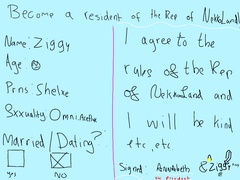 Become a resident of the Rep of NekkoLand!
Name: Ziggy
Age:
Prns: She/xe
Sxxuality Omni, Aroace
Married/Dating?
Yes
No
I agree to the
rules of the Rep
of NekkoLand and
I will be kind
etc, etc
Signed: Annabeth & Ziggy